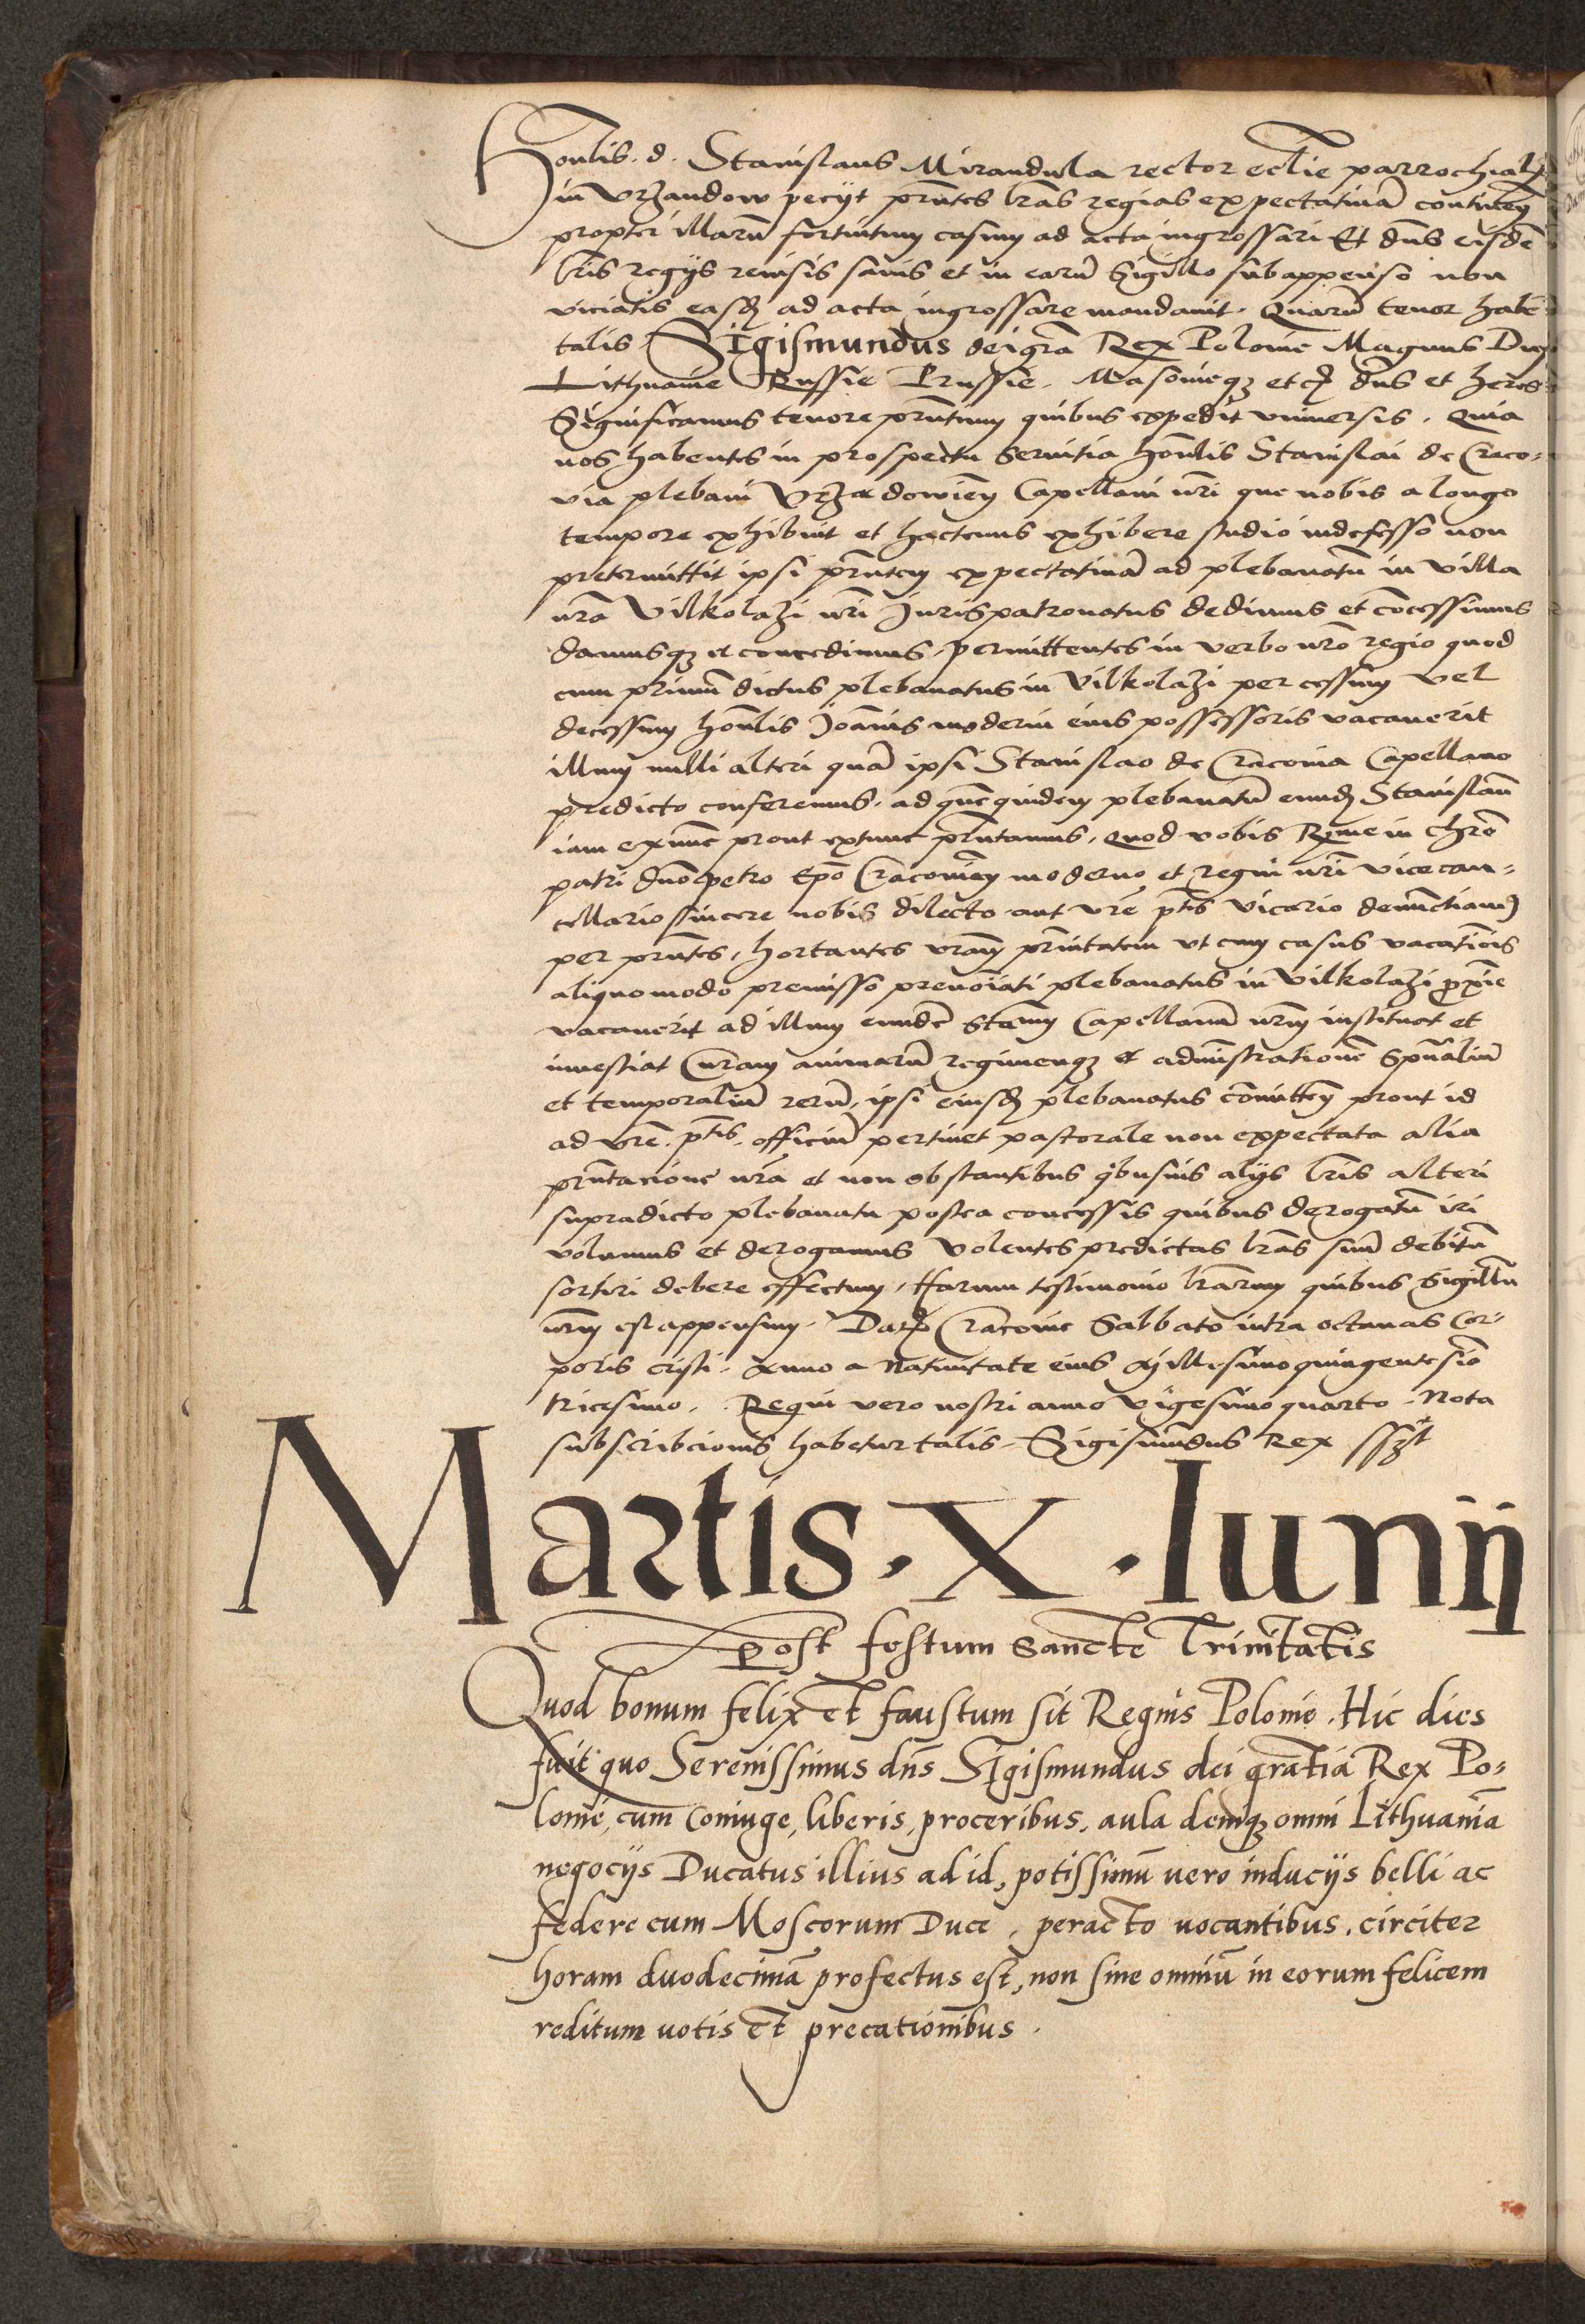 Honlis. d. Stanislaus Mirandula rector eclie parrochialis
in Vrzandow peciit pntes lras regias expectatiuā continen
propter illarū fortuitum casum ad acta ingrossari Et dns eisdē
lris regijs reuisis sanis et in earū Sigillo subappenso non
viciatis easd ad acta ingrossare mandauit. Quarū tenor habet
talis. Sigismundus dei grā Rex Polonie Magnus Dux
Lithuanie Russie Prussie. Masouieqz etc dns et heres
Significamus tenore pntium quibus expedit vniuersis. Quia
nos habentes in prospectu seruitia honlis Stanislai de Craco-
via plebani Vrzadowien Capellani nri que nobis a longo
tempore exhibuit et hactenus exhibere studio indefesso non
pretermittit ipsi pntem expectatiuā ad plebanatū in villa
nra Vilkolazi nri Jurispatronatus dedimus et cōcessimus
damusqz et concedimus, permittentes in verbo nro regio quod
cum primū dictus plebanatus in Vilkolazi per cessum vel
decessum honlis Joānis moderni eius possessoris vacauerit
illum nulli alteri quā ipsi Stanislao de Cracouia Capellano
predicto conferemus. ad quē quidem plebanatū eund Stanislaū
iam exnunc prout extunc pntamus. Quod vobis Rme in chro
patri dno petro Epo Cracouien moderno et regni nri vicecan-
cellario sincere nobis dilecto aut vre ptis vicario denunctiam
per pntes, hortantes vram pnitatem vt cum casus vacationis
aliquo modo premisso prenoiati plebanatus in Vilkolazi pxie
vacauerit ad illum eundē Stanm Capellanū nrm instituat et
inuestiat Curam animarū regimenqz et administrationē spualiū
et temporaliū rerū, ipsi eiusd plebanatus cōmitten prout id
ad vre. ptis. officiū pertinet pastorale non expectata alia
pntacione nra et non obstantibus qbusuis alijs lris alteri
supradicto plebanatu postea concessis quibus derogatū iri
volumus et derogamus volentes predictas lras suū debitū
sortiri debere effectum, Harum testimonio lrarum quibus Sigillū
nrm est appensum. Dat Cracouie Sabbato intra octauas Cor-
poris cristi. Anno a Natiuitate eius Millesimo quingentesio
tricesimo. Regni vero nostri anno vigesimo quarto. Nota
subscribcionis habetur talis. Sigismūdus Rex sszt
Martis . X . Iunij
Post festum Sancte Trinitatis
Quod bonum felix et faustum sit Regnis Polonie. Hic dies
fuit quo Serenissimus dns Sigismundus dei gratia Rex Po-
lonie, cum Coniuge, liberis, proceribus, aula deniqz omni Lithuaniā
negocijs Ducatus illius ad id, potissimū uero inducijs belli ac
federe cum Moscorum Duce, peracto uocantibus, circiter
horam duodecimā profectus est, non sine omniū in eorum felicem
reditum uotis et precationibus .